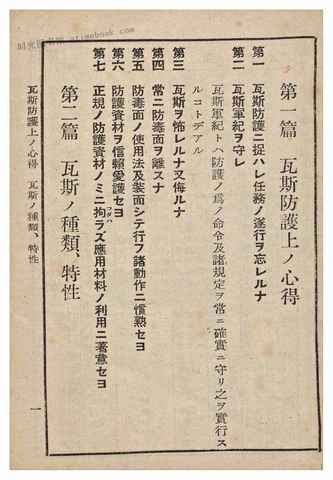 第一篇　瓦斯防護上ノ心得
第一　瓦斯防護ニ捉ハレ任務ノ遂行ヲ忘レルナ
第二　瓦斯軍紀ヲ守レ
瓦斯軍紀トハ防護ノ爲ノ命令及諸規定ヲ常ニ確實ニ守リ之ヲ實行ス
ルコトデアル
第三　瓦斯ヲ怖レルナ又侮ルナ
第四　常ニ防毒面ヲ離スナ
第五　防毒面ノ使用法及裝面シテ行フ諸動作ニ慣熟セヨ
第六　防護資材ヲ信頼愛護セヨ
第七　正規ノ防護資材ノミニ拘ラズ應用材料ノ利用ニ著意セヨ
第二篇　瓦斯ノ種類、特性
瓦斯防護上ノ心得　瓦斯ノ種類、特性
一